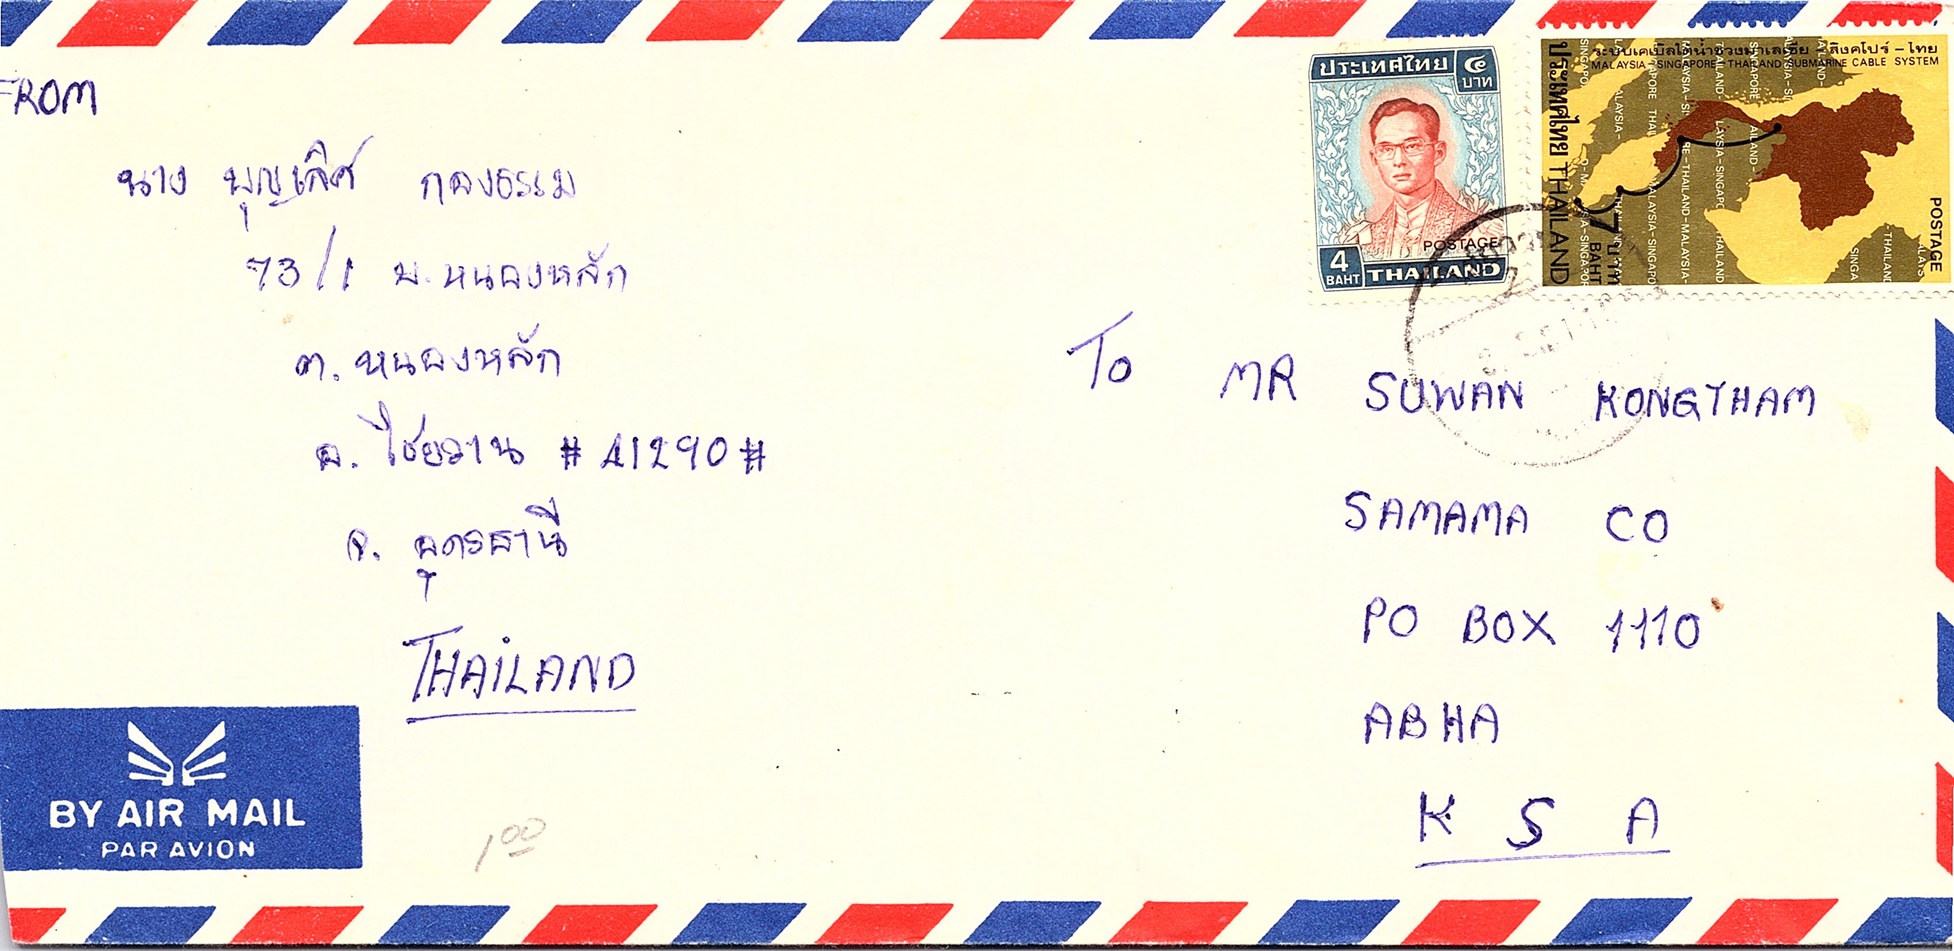 FROM
นาง บุญเลิศ กองธรรม
73/1 บ.หนองหลัก
ต.หนองหลัก
อ.ไชยวาน # 41290 #
จ. อุดรธานี
THAILAND
BY AIR MAIL
PAR AVION
1.00
ประเทศไทย ๔ บาท
POSTAGE
4 BAHT THAILAND
ระบบเคเบิลใต้น้ำช่วงมาเลเซีย - สิงคโปร์ - ไทย
MALAYSIA - SINGAPORE - THAILAND SUBMARINE CABLE SYSTEM
ประเทศไทย THAILAND
7 บาท BAHT
POSTAGE
To MR SUWAN KONGTHAM
SAMAMA CO
PO BOX 1110
ABHA
K S A